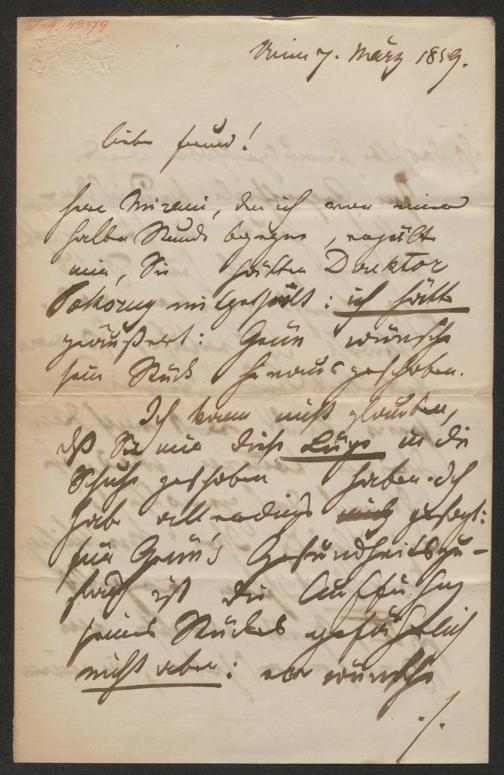 49379
Wien 7. März 1859.
Lieber Freund!
Herr Mirani, den ich vor einer
halben Stunde begegne, erzählt
mir, Sie hätten Direktor
Pokorny mitgetheilt: ich hätte
geäußert: Grün wünsche
sein Stück hinausgeschoben.
Ich kann nicht glauben,
daß Sie mir diese Lüge in die
Schuhe geschoben haben. Ich
hab allerdings gesagt:
für Grün's Gesundheitszu-
stand ist die Aufführung
seines Stückes gefährlich
nicht aber: er wünsche
./.